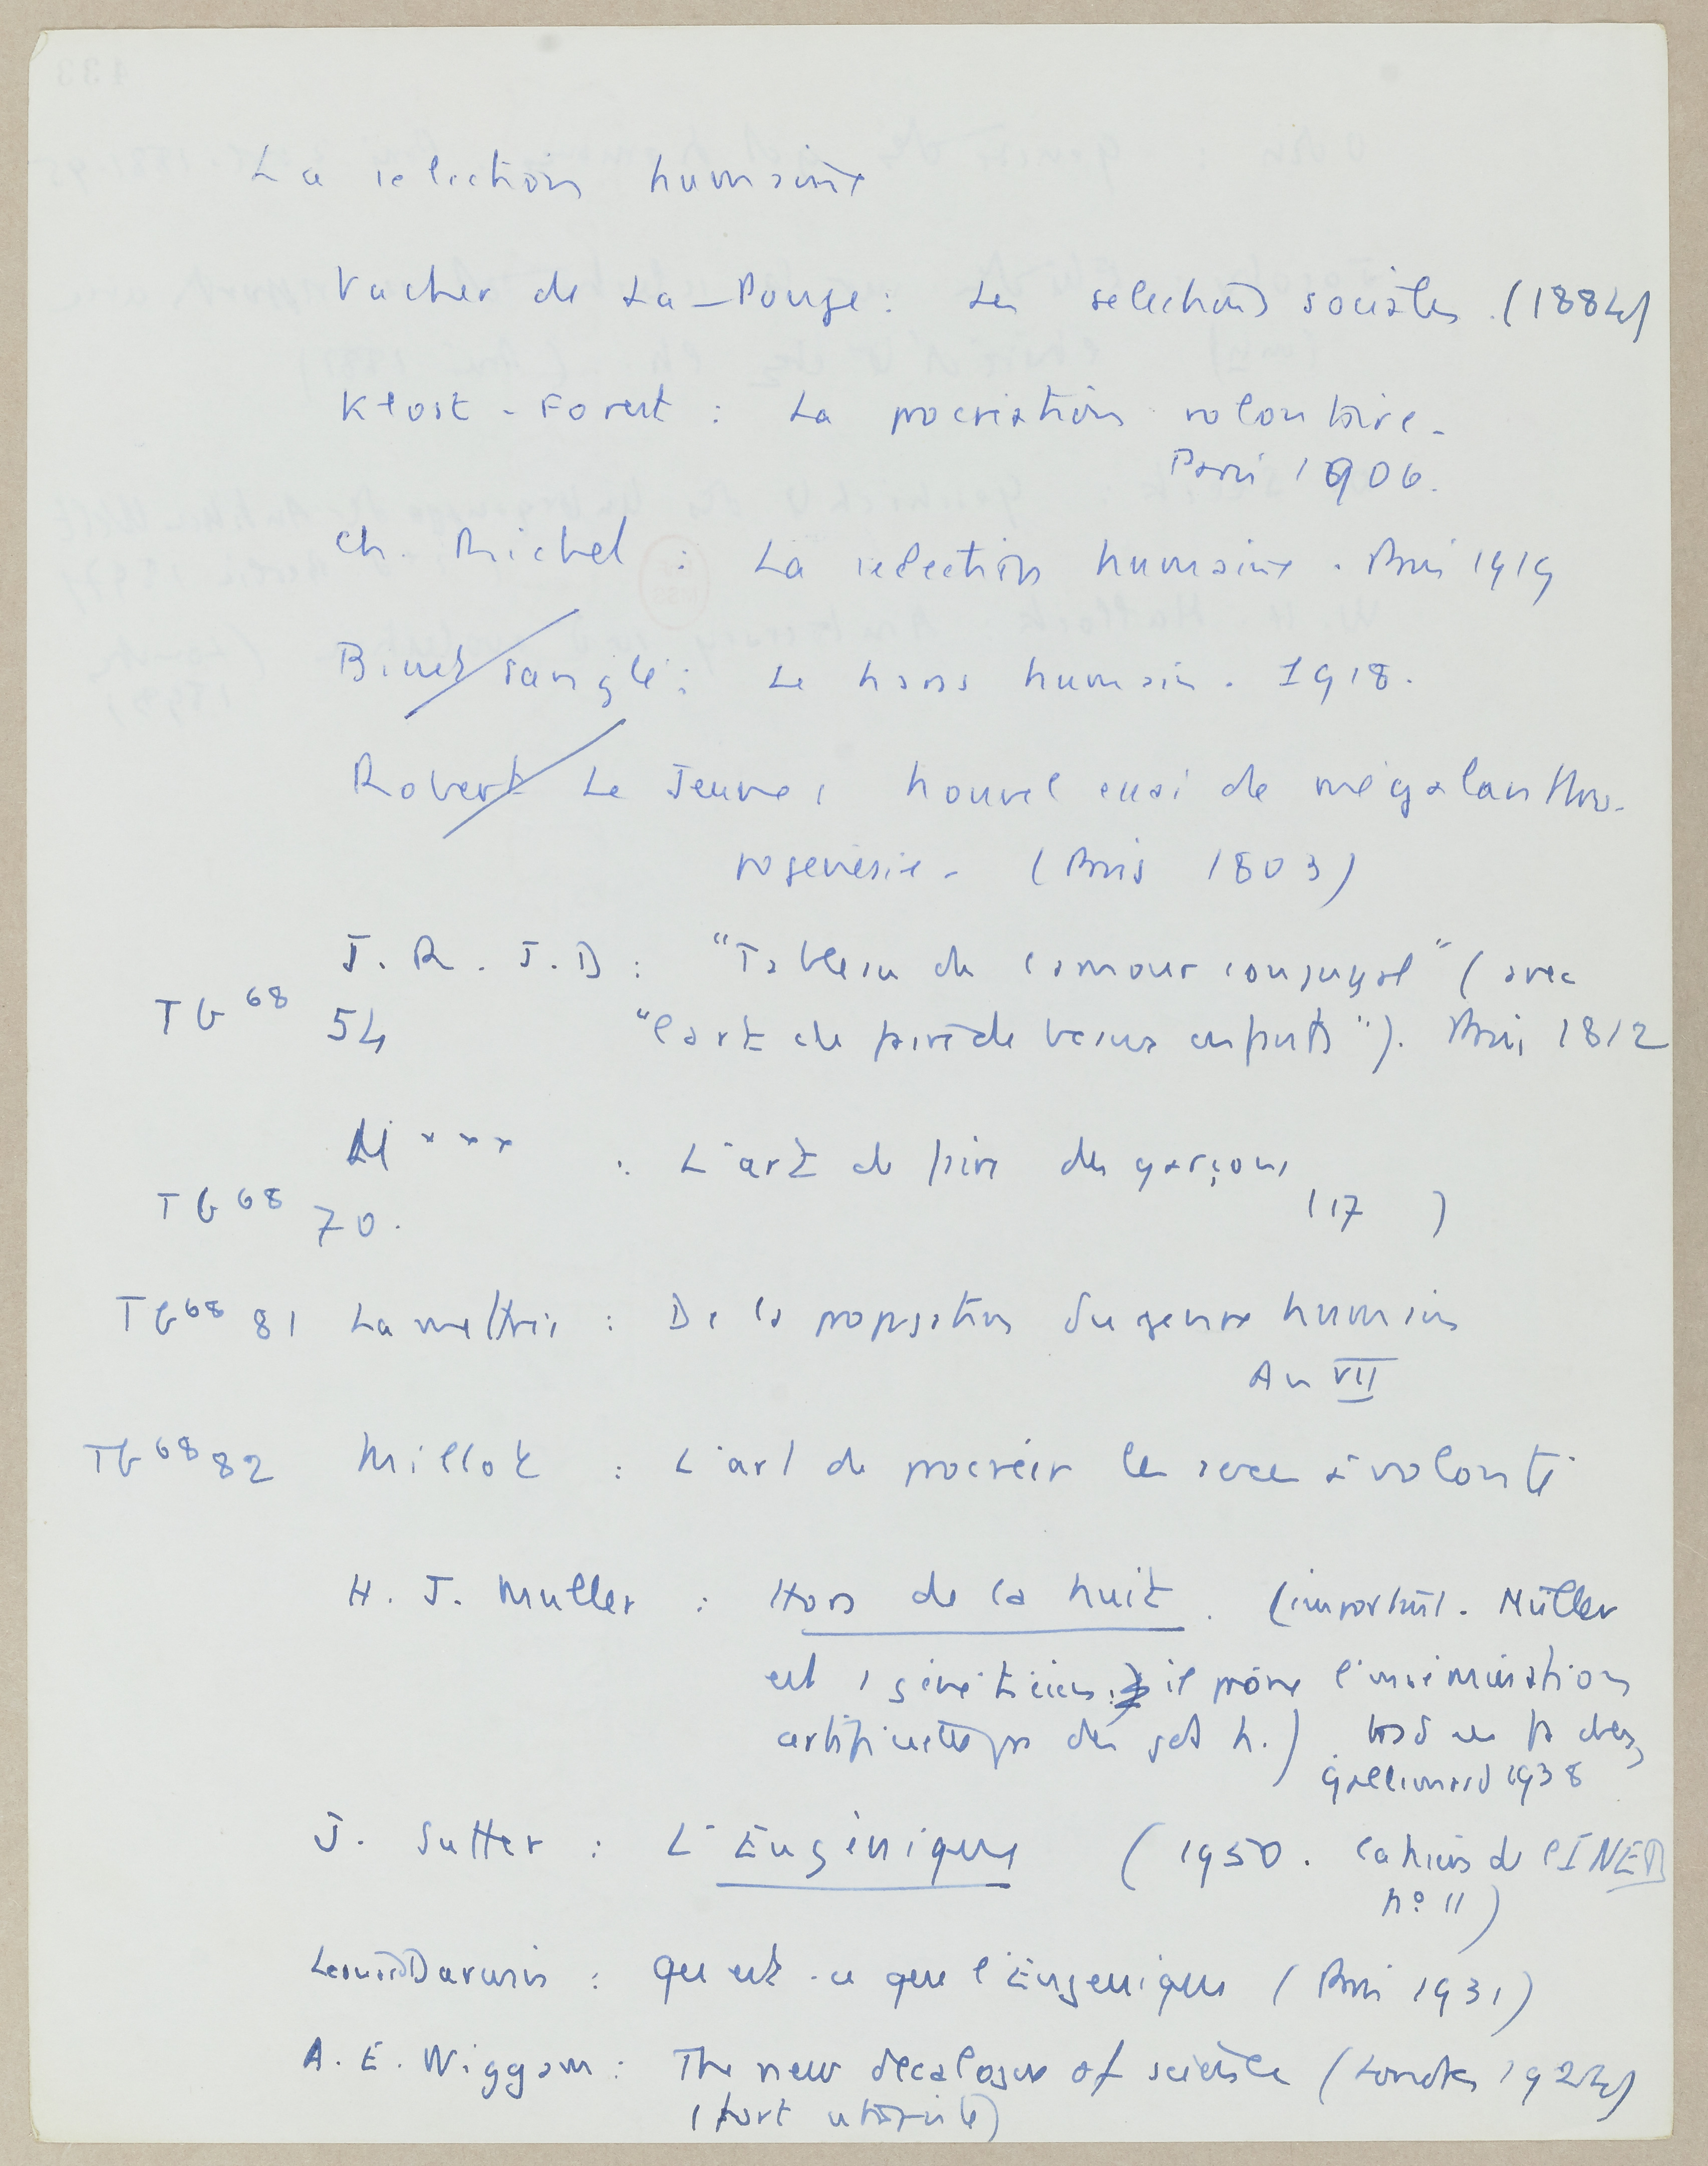 La selection humaine
Vacher de La-Pouge : Les selections sociales. (1884)
Klost-Forest : La procreation volontaire.
Paris 1906.
Ch. Richet : La selection humaine. Paris 1919
Binet Sanglé : Le haras humain. 1918.
Robert Le Jeune : Nouvel essai de mégalanthro-
pogenésie. (Paris 1803)
J. R. J. D : "Tableau de l'amour conjugal" (avec
TB 68 54 "l'art de faire de beaux enfants"). Paris 1812
M*** : L'art de faire des garçons
TB 68 70. (17 )
TB 68 81 Lamettrie : De la propagation du genre humain
An VII
TB 68 82 Millot : L'art de procréer les sexes à volonté
H. J. Muller : Hors de la nuit. (important. Müller
est 1 généticien ; il prône l'insémination
artificielle pr des h.) trad en fr chez
Gallimard 1938
J. Sutter : L'Eugénique (1950. Cahiers de l'INED
n° 11)
Leonard Darwin : Qu'est-ce que l'Eugenique (Paris 1931)
A. E. Wiggam : The new decalogue of science (Londres 1924)
(fort utopiste)